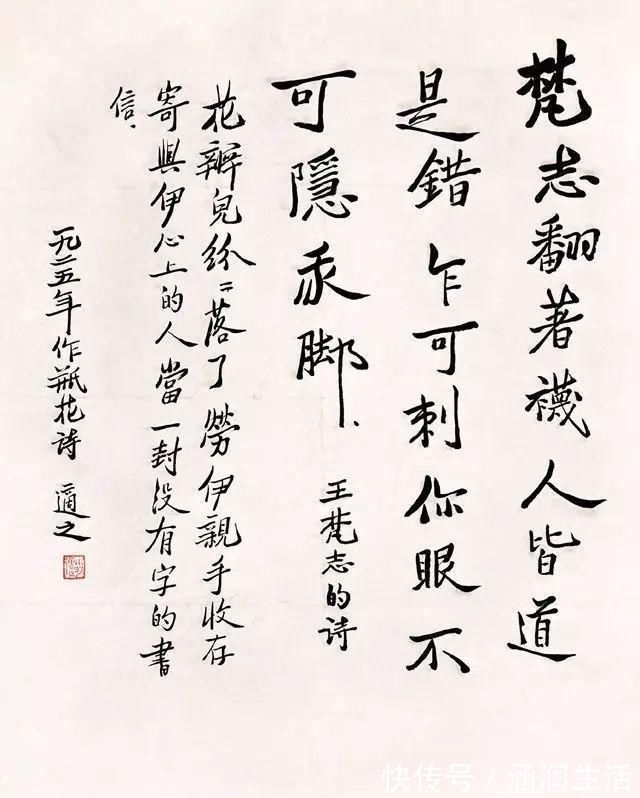 梵志翻著襪人皆道
是錯乍可刺你眼不
可隱我脚、
王梵志的诗
花瓣兒紛〻落了勞伊親手收存
寄與伊心上的人當一封没有字的書
信、
一九二五年作瓶花诗 適之
快传号／涵润生活